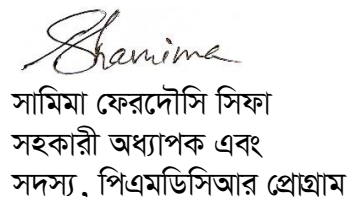 Shamima
সামিমা ফেরদৌসি সিফা
সহকারী অধ্যাপক এবং
সদস্য, পিএমডিসিআর প্রোগ্রাম